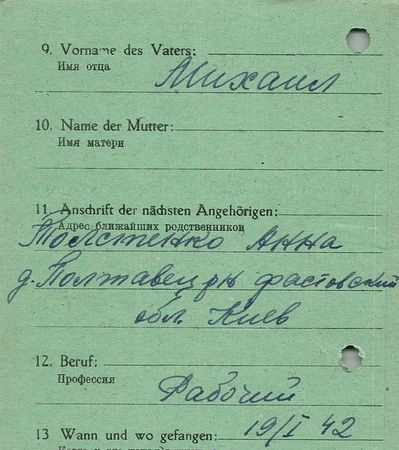 9. Vorname des Vaters:
Имя отца
Михаил
10. Name der Mutter:
Имя матери
11. Anschrift der nächsten Angehörigen:
Адрес ближайших родственников
Толстенко Анна
д. Полтавец рн фастовский
обл. Киев
12. Beruf:
Профессия
Рабочий
13 Wann und wo gefangen: 19/I 42